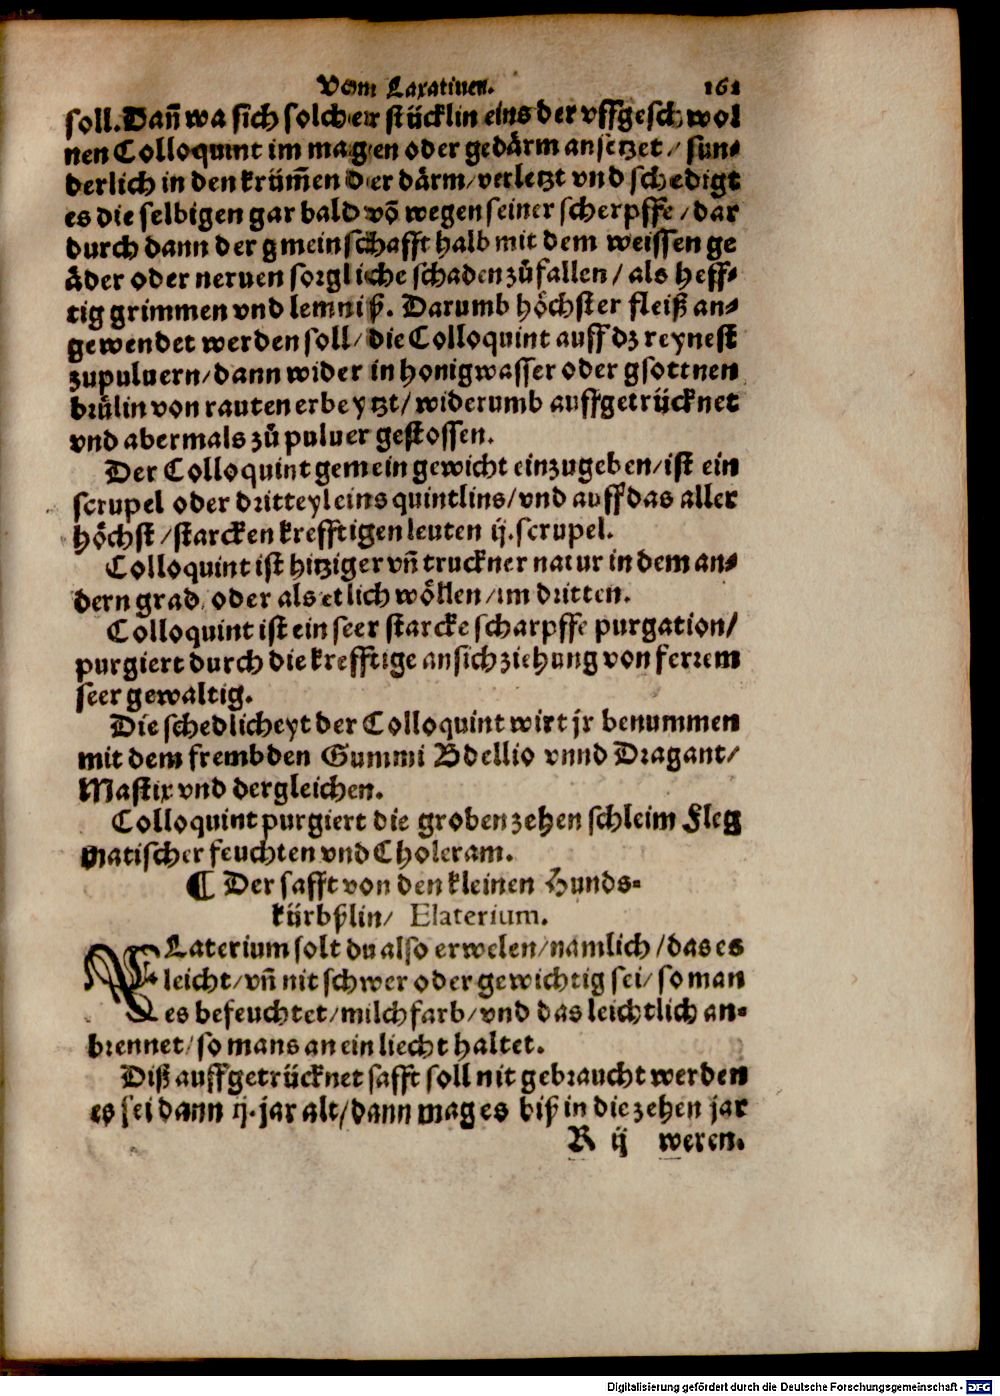 Vom Laxatiuen. 161
soll. Dañ wa sich solcher stücklin eins der vffgeschwol
nen Colloquint im magen oder gedärm ansetzet / sun⸗
derlich in den krüm̃en der därm / verletzt vnd schedigt
es die selbigen gar bald võ wegen seiner scherpffe / dar
durch dann der gmeinschafft halb mit dem weissen ge
äder oder neruen sorgliche schaden zůfallen / als heff⸗
tig grimmen vnd lemniß. Darumb höchster fleiß an⸗
gewendet werden soll / die Colloquint auff dz reynest
zupuluern / dann wider in honigwasser oder gsottnen
brülin von rauten erbeytzt / widerumb auffgetrücknet
vnd abermals zů puluer gestossen.
Der Colloquint gemein gewicht einzugeben / ist ein
scrupel oder dritteyl eins quintlins / vnd auff das aller
höchst / starcken krefftigen leuten ij. scrupel.
Colloquint ist hitziger vñ truckner natur in dem an⸗
dern grad oder als etlich wöllen / im dritten.
Colloquint ist ein seer starcke scharpffe purgation /
purgiert durch die krefftige ansichziehung von ferrem
seer gewaltig.
Die schedlicheyt der Colloquint wirt jr benummen
mit dem frembden Gummi Bdellio vnnd Dragant /
Mastix vnd dergleichen.
Colloquint purgiert die groben zehen schleim Fleg
matischer feuchten vnd Choleram.
¶ Der safft von den kleinen Hunds⸗
kürbßlin / Elaterium.
ELaterium solt du also erwelen / namlich / das es
leicht / vñ nit schwer oder gewichtig sei / so man
es befeuchtet / milchfarb / vnd das leichtlich an⸗
brennet / so mans an ein liecht haltet.
Diß auffgetrücknet safft soll nit gebraucht werden
es sei dann ij. jar alt / dann mag es biß in die zehen jar
R ij weren.
Digitalisierung gefördert durch die Deutsche Forschungsgemeinschaft - DFG